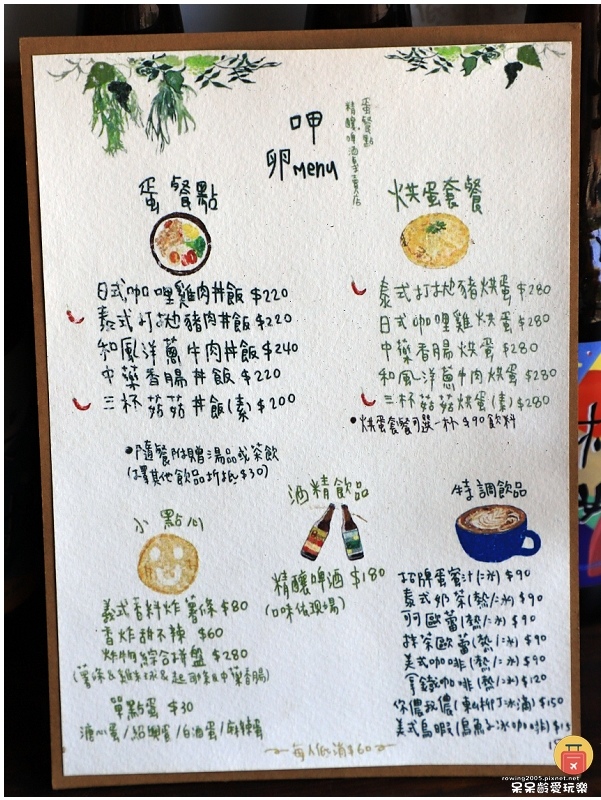 呷
卵menu
蛋餐點
精釀啤酒專賣店
蛋餐點
日式咖哩雞肉丼飯 $220
泰式打拋豬肉丼飯 $220
和風洋蔥牛肉丼飯 $240
中藥香腸丼飯 $220
三杯菇菇丼飯(素) $200
•隨餐附贈湯品或茶飲
(擇其他飲品折抵$30)
烘蛋套餐
泰式打拋豬烘蛋 $280
日式咖哩雞烘蛋 $280
中藥香腸烘蛋 $280
和風洋蔥牛肉烘蛋 $280
三杯菇菇烘蛋(素) $280
•烘蛋套餐可選一杯$90飲料
小點心
義式香料炸薯條 $80
香炸甜不辣 $60
炸物綜合拼盤 $280
單點蛋 $30
溏心蛋/紹興蛋/白酒蛋/麻辣蛋
酒精飲品
精釀啤酒 $180
(口味依現場)
特調飲品
招牌蛋蜜汁(冰) $90
泰式奶茶(熱/冰) $90
可可歐蕾(熱/冰) $90
抹茶歐蕾(熱/冰) $90
美式咖啡(熱/冰) $90
拿鐵咖啡(熱/冰) $120
你儂我儂 $150
每人低消$60
rowing2005.pixnet.net
呆呆齡愛玩樂